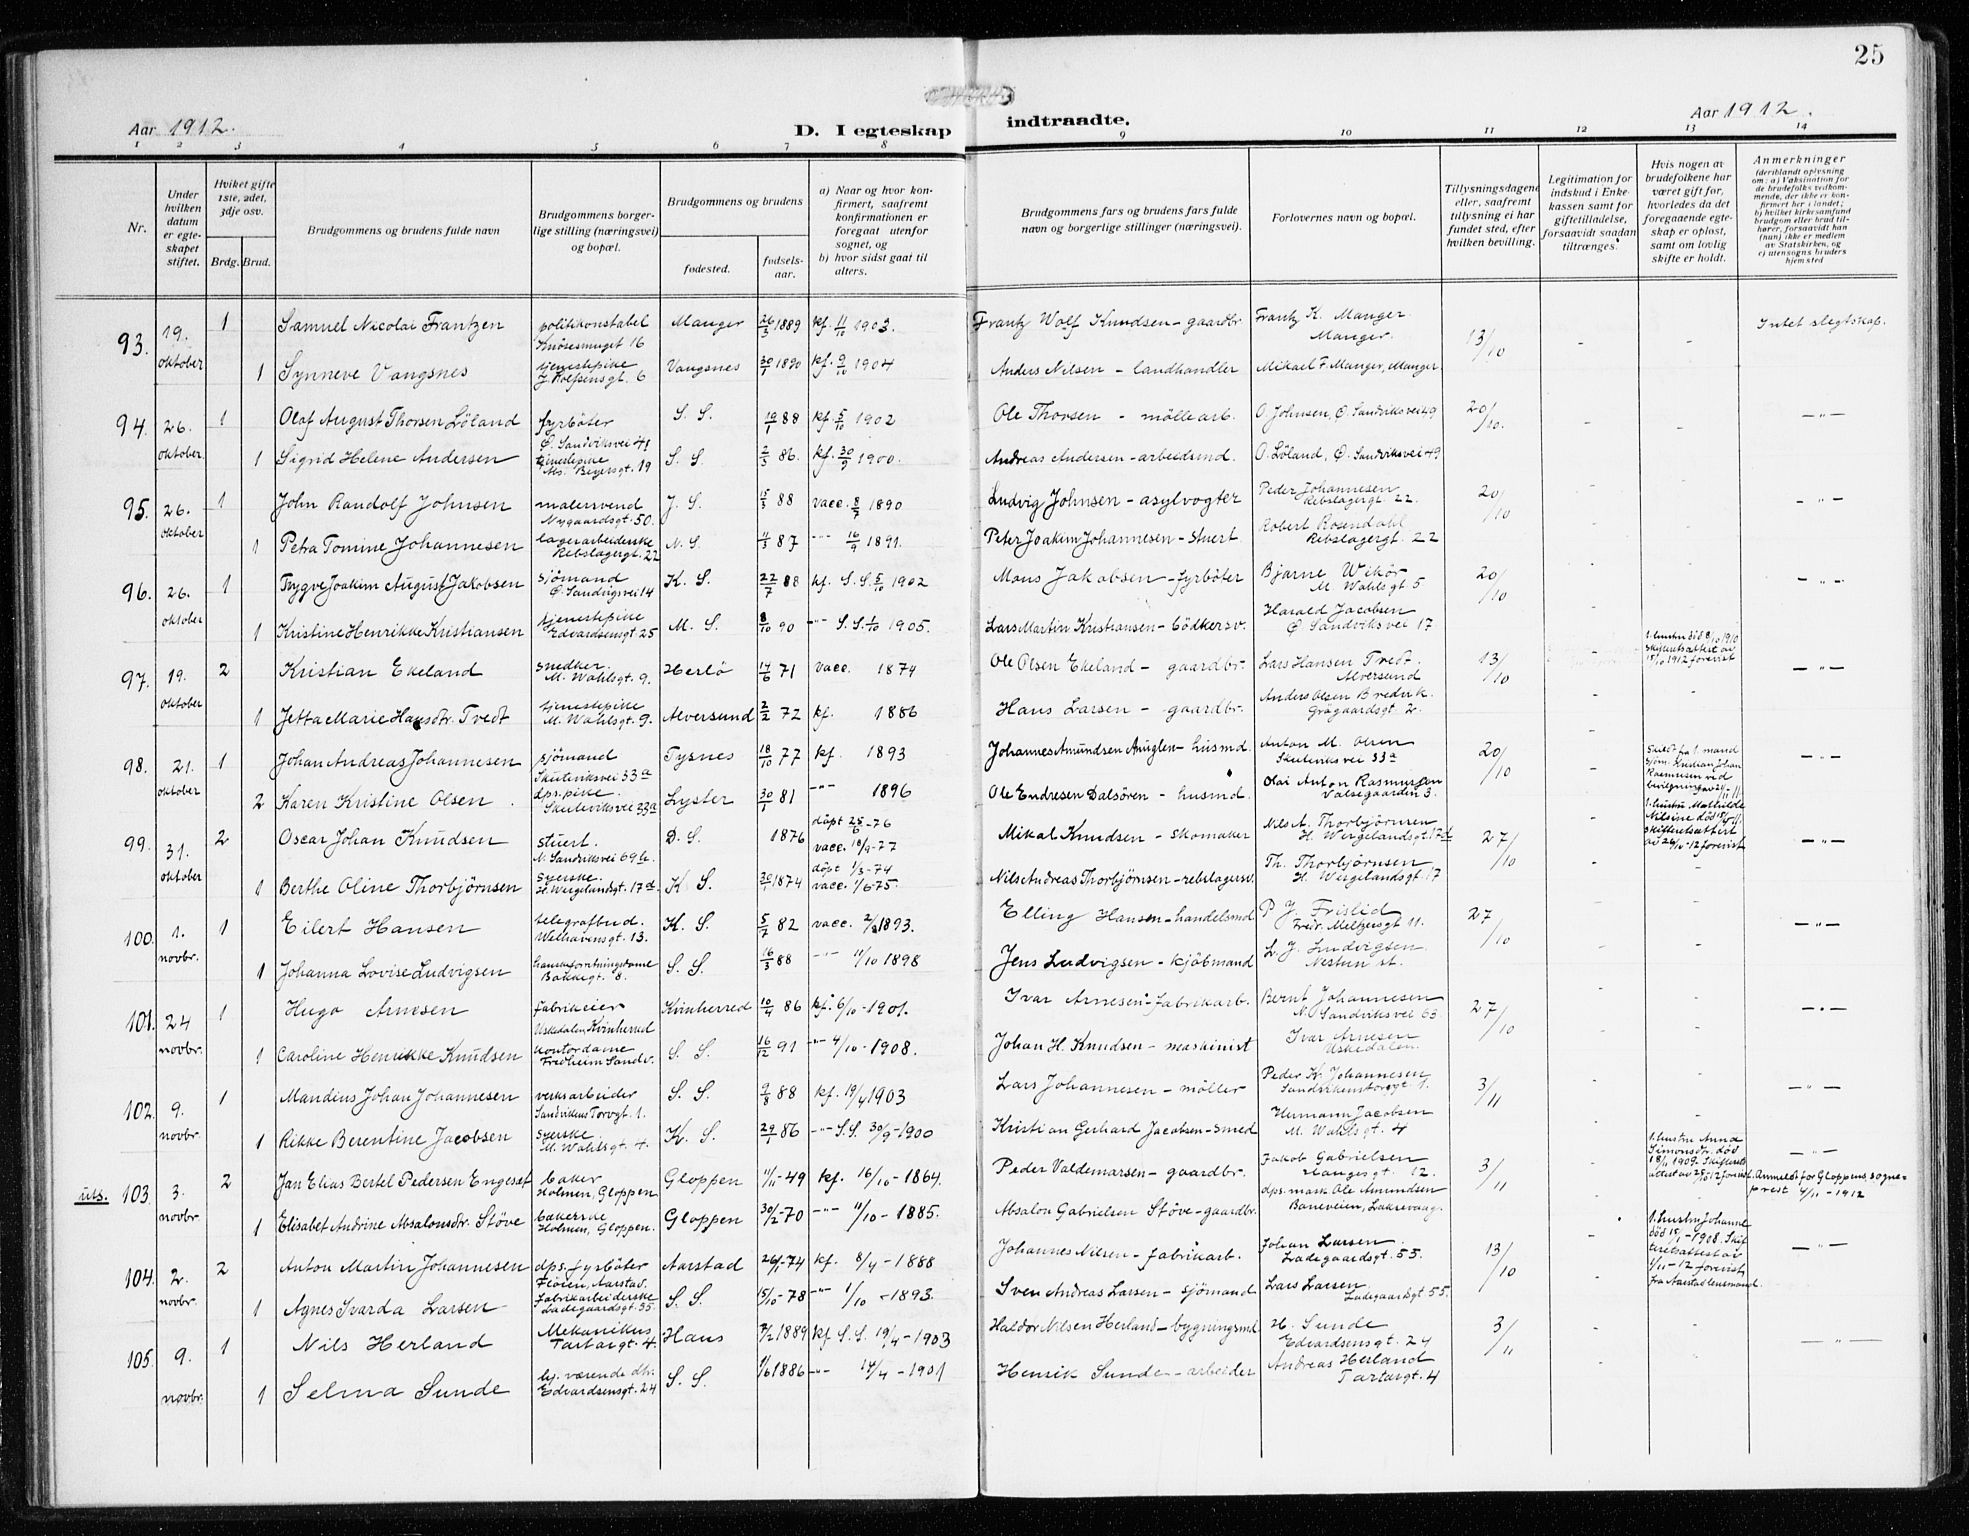 25
Aar 1912.
D. I egteskap indtraadte.
Aar 1912.
1 2 3 4 5 6 7 8 9 10 11 12 13 14
Nr.
Under hvilken datum er egteskapet stiftet.
Hvilket gifte 1ste, 2det, 3dje osv.
Brdg. Brud.
Brudgommens og brudens fulde navn
Brudgommens borgerlige stilling (næringsvei) og bopæl.
Brudgommens og brudens
fødested.
fødselsaar.
a) Naar og hvor konfirmert, saafremt konfirmationen er foregaat utenfor sognet, og
b) hvor sidst gaat til alters.
Brudgommens fars og brudens fars fulde navn og borgerlige stillinger (næringsvei).
Forlovernes navn og bopæl.
Tillysningsdagene eller, saafremt tillysning ei har fundet sted, efter hvilken bevilling.
Legitimation for indskud i Enkekassen samt for giftetilladelse, forsaavidt saadan tiltrænges.
Hvis nogen av brudefolkene har været gift før, hvorledes da det foregaaende egteskap er opløst, samt om lovlig skifte er holdt.
Anmerkninger (deriblandt oplysning om: a) Vaksination for de brudefolks vedkommende, der ikke er konfirmert her i landet; b) hvilket kirkesamfund brudgom eller brud tilhører, forsaavidt han (hun) ikke er medlem av Statskirken, og c) utensogns bruders hjemsted
93. 19. oktober 1 Samuel Nicolai Frantzen politikonstabel Smörsmuget 16 Manger 26/3 1889 kf. 11/10 1903. Frantz Wolf Knudsen - gaardbr. Frantz K. Manger Manger. 13/10 - - Intet slegtskap.
1 Synneve Vangsnes tjenestepike Vangsnes 30/1 1890 kf. 9/10 1904 Anders Nilsen - landhandler Mikael F. Manger, Manger
94. 26. oktober 1 Olaf August Thorsen Löland fyrböter Ö. Sandviksvei 49 S. S. 19/1 88 kf. 5/10 1902 Ole Thorsen - möllearb. O. Johnsen, Ö. Sandviksvei 49 20/10. - - -"-
1 Sigrid Helene Andersen tjenestepike 19 S. S. 2/3 86. kf. 30/9 1900. Andreas Andersen - arbeidsmd. O. Löland, Ö. Sandviksvei 49
95. 26. oktober 1 John Randolf Johnsen malersvend Nygaardsgt. 50. J. S. 15/3 88 vacc. 8/7 1890 Ludvig Johnsen - asylvogter Peder Johannesen Rebslagergt. 22. 20/10 - - -"-
1 Petra Tomine Johannesen lagerarbeiderske Rebslagergt. 22 N. S. 11/3 87 -"- 16/9 1891. Peter Joakim Johannesen - stuert Robert Rosendahl Rebslagergt. 22
96. 26. oktober 1 Trygve Joakim August Jakobsen sjömand Ö. Sandvigsvei 14 K. S. 22/7 88 kf. S. S. 5/10 1902 Mons Jakobsen - fyrböter Bjarne Wikör M. Wahlsgt 5 20/10 - - -"-
1 Kristine Henrikke Kristiansen tjenestepike Edvardsensgt. 25 M. S. 8/10 90 -"- S. S. 1/10 1905. Lars Martin Kristiansen - bödkersv. Harald Jacobsen Ö Sandviksvei 17
97. 19. oktober 2 Kristian Ekeland snedker. M. Wahlsgt. 9. Herlö 14/6 71 vacc. 1874 Ole Olsen Ekeland - gaardbr. Lars Hansen Tvedt. Alversund 13/10 1. hustru död 8/10 1910 skifteretsattest av 15/10 1912 forevist -"-
1 Jetta Marie Hansdtr. Tvedt tjenestepike M. Wahlsgt. 9. Alversund 2/2 72 kf. 1886 Hans Larsen - gaardbr. Anders Olsen Bredvik. Grögaardsgt. 2.
98. 21. oktober 1 Johan Andreas Johannesen sjömand Skuteviksvei 33a Tysnes 18/10 77 kf. 1893 Johannes Amundsen Anuglen - husmd. Anton M. Olsen Skuteviksvei 33a 20/10 - skilt fra 1. mand sjöm. Kristian Johan Rasmussen ved bevilgning av -"-
2 Karen Kristine Olsen dps. pike. Skuteviksvei 33a Lyster 30/1 81 -"- 1896 Ole Endresen Dalsören - husmd. Olai Anton Rasmussen 3.
99. 31. oktober 2 Oscar Johan Knudsen stuert. N. Sandviksvei 69b. D. S. 1876 döpt 25/6-76 vacc. 18/9-77 Mikal Knudsen - skomaker Nils A. Thorbjörnsen H. Wergelandsgt. 17d 27/10 - 1. hustru Mathilde Nilsine död skifteretsattest av 26/10-12 forevist -"-
1 Berthe Oline Thorbjörnsen syerske. H. Wergelandsgt. 17d. K. S. 30/1 1874 döpt 1/3-74 vacc. 1/6-75. Nils Andreas Thorbjörnsen - rebslagersv. Th. Thorbjörnsen H. Wergelandsgt. 17
100. 1. novbr. 1 Eilert Hansen telegrafbud. Welhavensgt. 13. K. S. 5/7 82 vacc. 1893. Elling Hansen - handelsmd P J. Frislid Fredr. Meltzersgt 11. 27/10 - - -"-
1 Johanna Lovise Ludvigsen Bakkegt. 8. S. S. 16/3 88 -"- 11/10 1898 Jens Ludvigsen - kjöbmand L. J. Ludvigsen Nestun st.
101. 24 novbr. 1 Hugo Arnesen fabrikeier Uskedalen, Kvinherred Kvinherred 10/4 86 kf. 6/10-1901. Ivar Arnesen - fabrikarb. Bernt Johannesen N. Sandviksvei 63. 27/10 - - -"-
1 Caroline Henrikke Knudsen kontordame Fredheim Sandv. S. S. 16/12 91 -"- 4/10-1908. Johan H. Knudsen - maskinist Ivar Arnesen Uskedalen.
102. 9. novbr. 1 Mandius Johan Johannesen verksarbeider Sandvikens Torvgt. 1. S. S. 9/8 88 kf. 19/4 1903 Lars Johannesen - möller Peder K. Johannesen Sandvikenstorvgt 1. 3/11 - - -"-
1 Rikke Berentine Jacobsen syerske. M. Wahlsgt. 4. K. S. 29/1 86 -"- S. S. 30/9-1900 Kristian Gerhard Jacobsen - smed Hermann Jacobsen M. Wahlsgt. 4
uts. 103. 3. novbr. 2 Jan Elias Bertel Pedersen Engeset baker Holmen, Gloppen Gloppen 11/11-49 kf. 16/10-1864. Peder Valdemarsen - gaardbr. Jakob Gabrielsen Haugesgt. 12. 3/11 - 1. hustru Anna Simonsdtr. död 18/11 1909. Skifterets attest av 25/10 12 forevist. -"- Anmeldt for Gloppens sogneprest 4/11-1912
1 Elisabet Andrine Absalonsdtr. Stöve bakerske Holmen, Gloppen. Gloppen 30/2-70 -"- 11/10-1885. Absalon Gabrielsen Stöve - gaardbr. dps. mask. Ole Amundsen Baneveien, Laksevaag.
104. 2. novbr. 2 Anton Martin Johannesen dps. fyrböter Flöen, Aarstad. Aarstad 26/1-74 kf. 8/4-1888 Johannes Nilsen - fabrikarb. Johan Larsen Ladegaardsgt. 55. 13/10 - 1. hustru Johanne död 15/1-1908. Skifteretsattest av 1/11-12 forevist fra Aarstad lensmand. -"-
1 Agnes Svarda Larsen fabrikarbeiderske Ladegaardsgt. 55. S. S. 15/10-78 -"- 1/10-1893. Sven Andreas Larsen - sjömand Lars Larsen Ladegaardsgt 55.
105. 9. novbr. 1 Nils Herland Mekanikus Tartargt. 4. Haus 7/2 1889 kf S. S. 19/4-1903 Haldor Nilsen Herland - bygningsmd. H. Sunde Edvardsensgt. 24 3/11 - - -"-
1 Selma Sunde hj. værende dtr. Edvardsensgt. 24 S. S. 1/6 1886 -"- 14/4-1901 Henrik Sunde - arbeider Andreas Herland Tartargt. 4